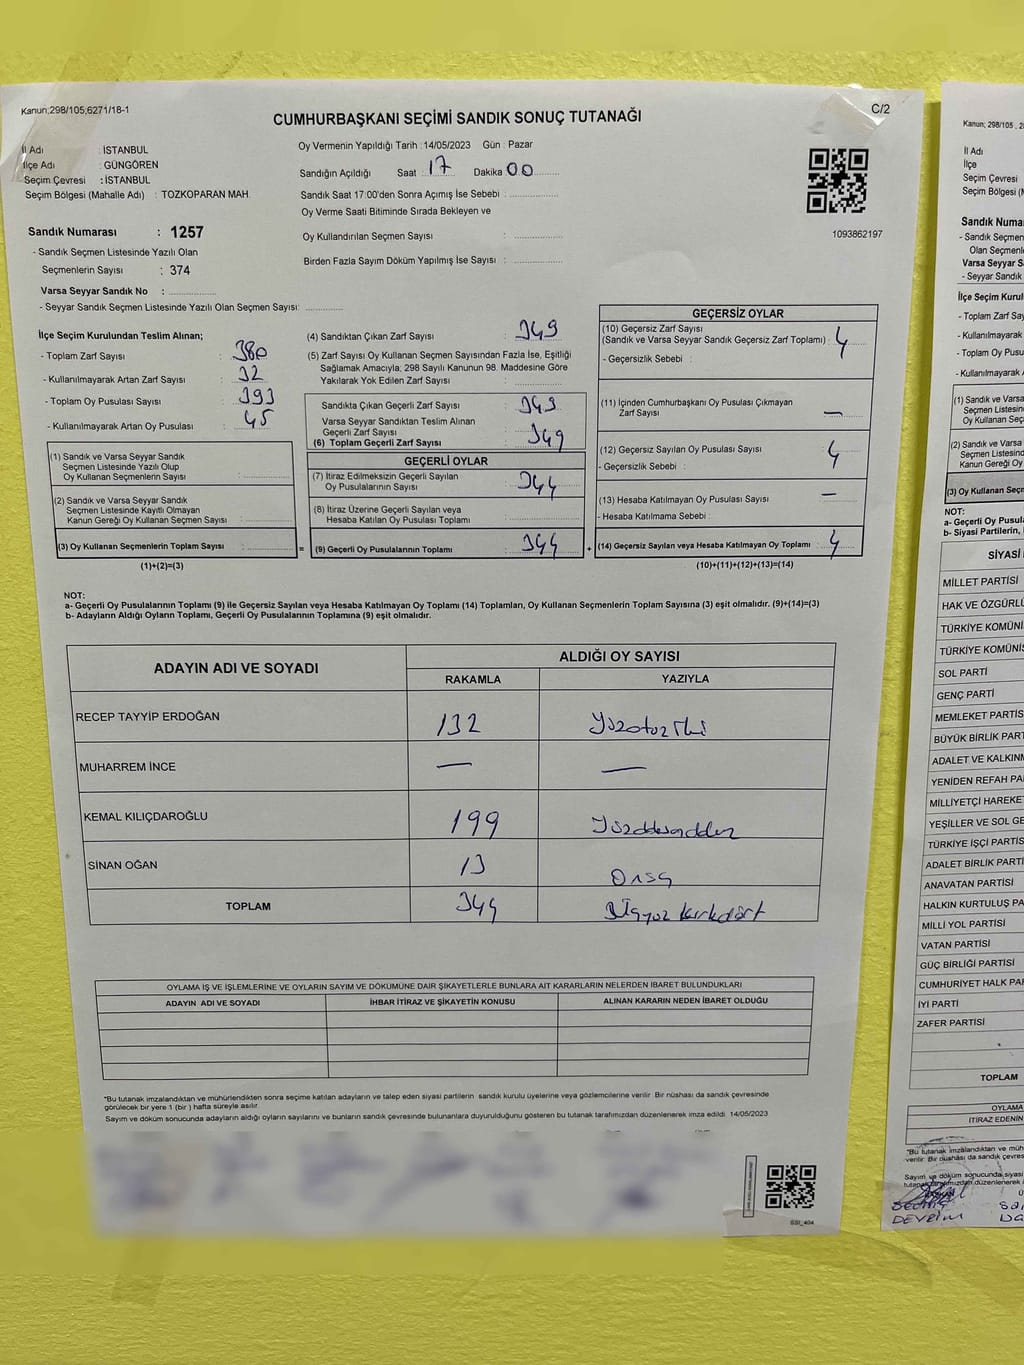 Kanun;298/105,6271/18-1
C/2
CUMHURBAŞKANI SEÇİMİ SANDIK SONUÇ TUTANAĞI
İl Adı : İSTANBUL
İlçe Adı : GÜNGÖREN
Seçim Çevresi : İSTANBUL
Seçim Bölgesi (Mahalle Adı) : TOZKOPARAN MAH.
Oy Vermenin Yapıldığı Tarih : 14/05/2023 Gün : Pazar
Sandığın Açıldığı Saat : 17 Dakika 00
Sandık Saat 17:00'den Sonra Açımış İse Sebebi :
Oy Verme Saati Bitiminde Sırada Bekleyen ve
Oy Kullandırılan Seçmen Sayısı :
Birden Fazla Sayım Döküm Yapılmış İse Sayısı :
1093862197
Sandık Numarası : 1257
- Sandık Seçmen Listesinde Yazılı Olan
Seçmenlerin Sayısı : 374
Varsa Seyyar Sandık No :
- Seyyar Sandık Seçmen Listesinde Yazılı Olan Seçmen Sayısı:
İlçe Seçim Kurulundan Teslim Alınan;
- Toplam Zarf Sayısı : 380
- Kullanılmayarak Artan Zarf Sayısı : 32
- Toplam Oy Pusulası Sayısı : 393
- Kullanılmayarak Artan Oy Pusulası : 45
(1) Sandık ve Varsa Seyyar Sandık
Seçmen Listesinde Yazılı Olup
Oy Kullanan Seçmenlerin Sayısı :
(2) Sandık ve Varsa Seyyar Sandık
Seçmen Listesinde Kayıtlı Olmayan
Kanun Gereği Oy Kullanan Seçmen Sayısı :
(3) Oy Kullanan Seçmenlerin Toplam Sayısı :
(1)+(2)=(3)
(4) Sandıktan Çıkan Zarf Sayısı : 349
(5) Zarf Sayısı Oy Kullanan Seçmen Sayısından Fazla İse, Eşitliği
Sağlamak Amacıyla; 298 Sayılı Kanunun 98. Maddesine Göre
Yakılarak Yok Edilen Zarf Sayısı :
Sandıkta Çıkan Geçerli Zarf Sayısı : 349
Varsa Seyyar Sandıktan Teslim Alınan
Geçerli Zarf Sayısı :
(6) Toplam Geçerli Zarf Sayısı : 349
GEÇERLİ OYLAR
(7) İtiraz Edilmeksizin Geçerli Sayılan
Oy Pusulalarının Sayısı : 344
(8) İtiraz Üzerine Geçerli Sayılan veya
Hesaba Katılan Oy Pusulası Toplamı :
= (9) Geçerli Oy Pusulalarının Toplamı : 344
GEÇERSİZ OYLAR
(10) Geçersiz Zarf Sayısı
(Sandık ve Varsa Seyyar Sandık Geçersiz Zarf Toplamı) : 4
- Geçersizlik Sebebi :
(11) İçinden Cumhurbaşkanı Oy Pusulası Çıkmayan
Zarf Sayısı : —
(12) Geçersiz Sayılan Oy Pusulası Sayısı : 4
- Geçersizlik Sebebi :
(13) Hesaba Katılmayan Oy Pusulası Sayısı : —
- Hesaba Katılmama Sebebi :
+ (14) Geçersiz Sayılan veya Hesaba Katılmayan Oy Toplamı : 4
(10)+(11)+(12)+(13)=(14)
NOT:
a- Geçerli Oy Pusulalarının Toplamı (9) ile Geçersiz Sayılan veya Hesaba Katılmayan Oy Toplamı (14) Toplamları, Oy Kullanan Seçmenlerin Toplam Sayısına (3) eşit olmalıdır. (9)+(14)=(3)
b- Adayların Aldığı Oyların Toplamı, Geçerli Oy Pusulalarının Toplamına (9) eşit olmalıdır.
ADAYIN ADI VE SOYADI
ALDIĞI OY SAYISI
RAKAMLA YAZIYLA
RECEP TAYYİP ERDOĞAN 132 Yüzotuziki
MUHARREM İNCE — —
KEMAL KILIÇDAROĞLU 199 Yüzdoksandokuz
SİNAN OĞAN 13 Onüç
TOPLAM 344 Üçyüz kırkdört
OYLAMA İŞ VE İŞLEMLERİNE VE OYLARIN SAYIM VE DÖKÜMÜNE DAİR ŞİKAYETLERLE BUNLARA AİT KARARLARIN NELERDEN İBARET BULUNDUKLARI
ADAYIN ADI VE SOYADI İHBAR İTİRAZ VE ŞİKAYETİN KONUSU ALINAN KARARIN NEDEN İBARET OLDUĞU
*Bu tutanak imzalandıktan ve mühürlendikten sonra seçime katılan adayların ve talep eden siyasi partilerin sandık kurulu üyelerine veya gözlemcilerine verilir. Bir nüshası da sandık çevresinde
görülecek bir yere 1 (bir) hafta süreyle asılır.
Sayım ve döküm sonucunda adayların aldığı oyların sayılarını ve bunların sandık çevresinde bulunanlara duyurulduğunu gösteren bu tutanak tarafımızdan düzenlenerek imza edildi. 14/05/2023
SSI_404
Kanun; 298/105
İl Adı
İlçe
Seçim Çevresi
Seçim Bölgesi
Sandık
- Sandık Seçmen
Olan
Varsa Seyyar
- Seyyar Sandık
İlçe Seçim
- Toplam Zarf
- Kullanılmayarak
- Toplam Oy
- Kullanılmayarak
(1) Sandık ve Varsa
Seçmen
Oy Kullanan
(2) Sandık ve Varsa
Seçmen
Kanun Gereği
(3) Oy Kullanan
NOT:
a- Geçerli Oy
b- Siyasi Partilerin,
SİYASİ
MİLLET PARTİSİ
HAK VE
TÜRKİYE
TÜRKİYE
SOL PARTİ
GENÇ PARTİ
MEMLEKET
BÜYÜK BİRLİK
ADALET VE
YENİDEN REFAH
MİLLİYETÇİ
YEŞİLLER VE SOL
TÜRKİYE İŞÇİ
ADALET BİRLİK
ANAVATAN PARTİSİ
HALKIN KURTULUŞ
MİLLİ YOL PARTİSİ
VATAN PARTİSİ
GÜÇ BİRLİĞİ PARTİSİ
CUMHURİYET HALK
İYİ PARTİ
ZAFER PARTİSİ
TOPLAM
OYLAMA
İTİRAZ EDENİN
*Bu tutanak imzalandıktan ve
verilir. Bir nüshası da sandık
Sayım ve döküm sonucunda
DEVRİM